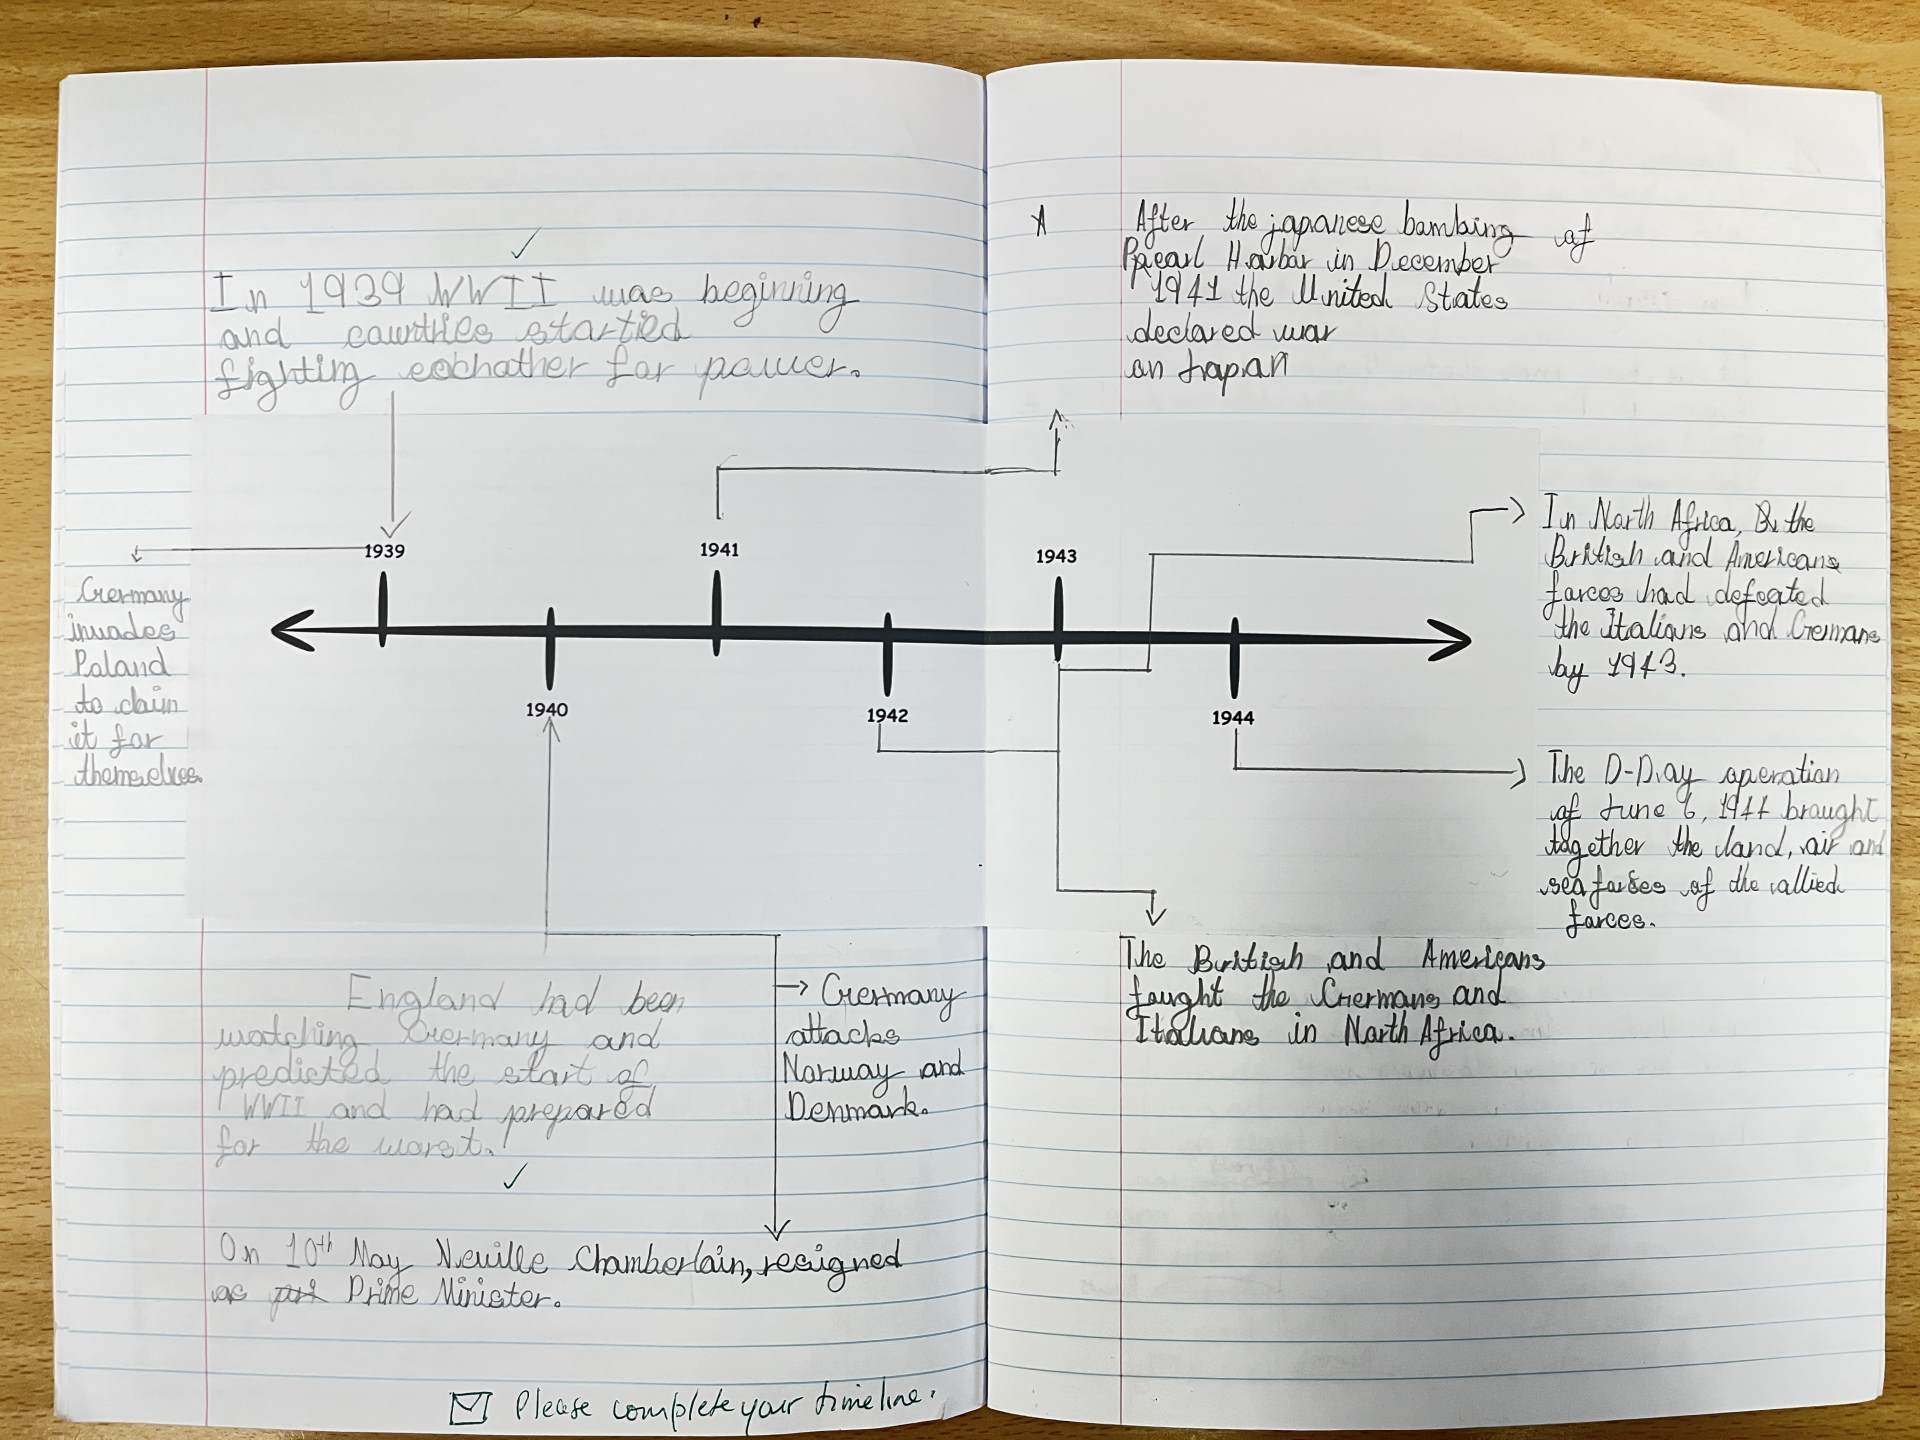 In 1939 WWII was beginning
and countries startied
fighting eachother for power.
1939
Germany
invades
Poland
to claim
it for
themselves.
1940
England had been
watching Germany and
predicted the start of
WWII and had prepared
for the worst.
Germany
attacks
Norway and
Denmark.
On 10th May Neville Chamberlain, resigned
as Prime Minister.
Please complete your timeline.
1941
After the japanese bombing of
Pearl Harbor in December
1941 the United States
declared war
on Japan
1942
The British and Americans
fought the Germans and
Italians in North Africa.
1943
In North Africa, the
British and Americans
forces had defeated
the Italians and Germans
by 1943.
1944
The D-Day operation
of June 6, 1944 brought
together the land, air and
sea forces of the allied
forces.